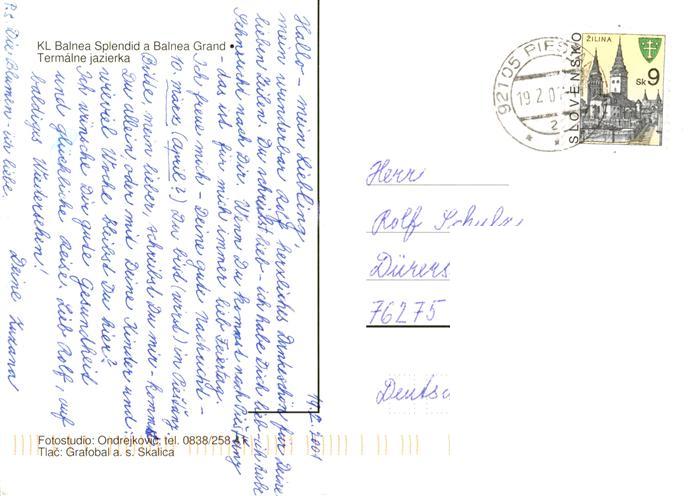 KL Balnea Splendid a Balnea Grand •
Termálne jazierka
Hallo – mein Liebling,
mein wunderbar Rolf, herzliches Dankeschön für Deine
lieben Zeilen. Du schreibst lieb – ich habe Dich lieb – ich habe
Sehnsucht nach Dir. Wenn Du kommst nach Piešťany
– das ist für mich immer lieb Feiertag.
Ich freue mich – Deine gute Nachricht –
10. März (April?) Du bist (wirst) in Piešťany.
Bitte, mein lieber, schreibst Du mir – kommst
Du allein oder mit Deine Kinder und:
wieviel Woche bleibst Du hier?
Ich wünsche Dir gute Gesundheit
und glückliche Reise. Lieb Rolf, auf
baldiges Wiedersehen!
Deine Zuzana
P.S. Die Blumen – ich liebe.
2001
Fotostudio: Ondrejkovič, tel. 0838/258
Tlač: Grafobal a. s. Skalica
921 05 PIEŠ
19.2.01
2
ŽILINA
SLOVENSKO
Sk 9
Herr
Rolf
Dürers
76275
Deutsc